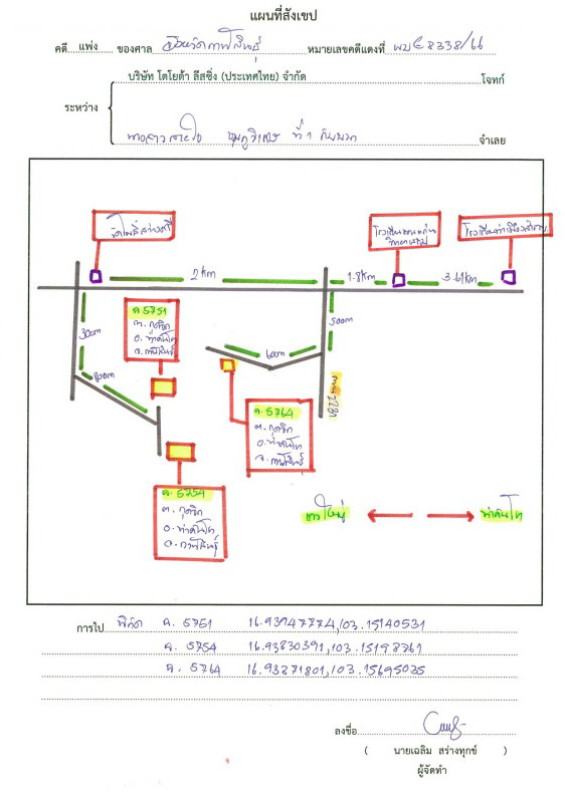 แผนที่สังเขป
คดี แพ่ง ของศาล จังหวัดกาฬสินธุ์ หมายเลขคดีแดงที่ ผบE8338/66
บริษัท โตโยต้า ลีสซิ่ง (ประเทศไทย) จำกัด โจทก์
ระหว่าง
นางสาว ที่ 1 กับพวก จำเลย
วัดโพธิ์สว่างศรี
2 km
1.8 km
3.61 km
300m
800m
500m
600m
2281
ค 5751
ต. กุดจิก
อ. ท่าคันโท
จ. กาฬสินธุ์
ค. 5764
ต. กุดจิก
อ. ท่าคันโท
จ. กาฬสินธุ์
ค. 5754
ต. กุดจิก
อ. ท่าคันโท
จ. กาฬสินธุ์
ท่าคันโท
การไป พิกัด ค. 5751 16.93947774,103.15140531
ค. 5754 16.93830391,103.15198761
ค. 5764 16.93271801,103.15695035
ลงชื่อ
( นายเฉลิม สร่างทุกข์ )
ผู้จัดทำ